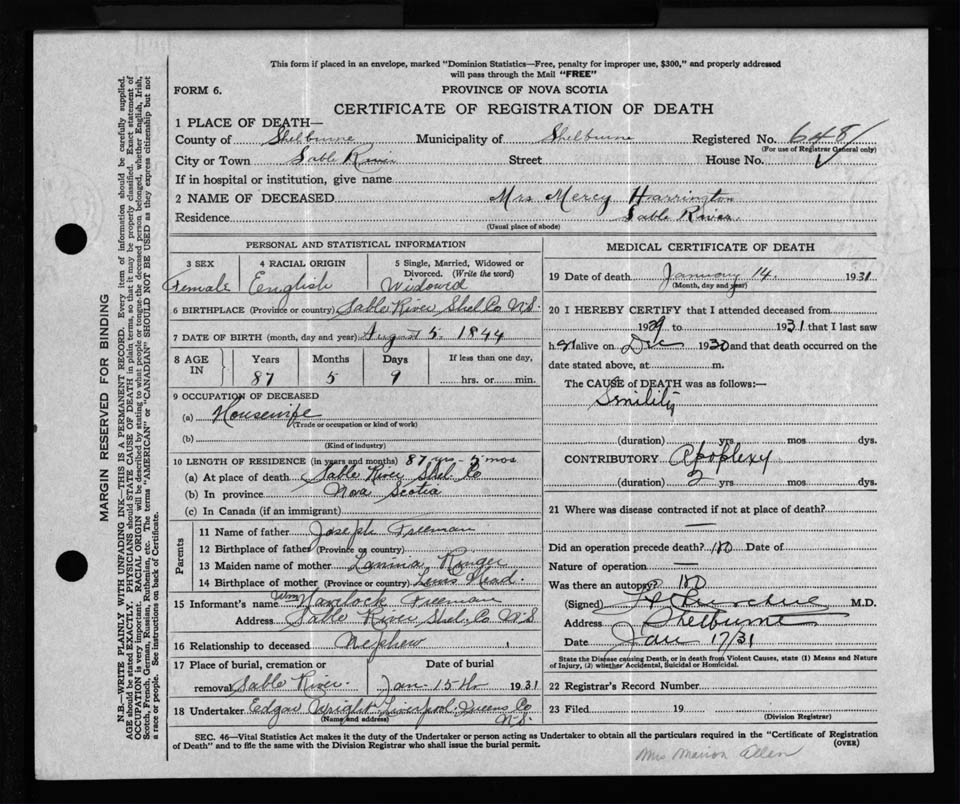 This form if placed in an envelope, marked "Dominion Statistics—Free, penalty for improper use, $300," and properly addressed
will pass through the Mail "FREE"
FORM 6.
PROVINCE OF NOVA SCOTIA
CERTIFICATE OF REGISTRATION OF DEATH
1 PLACE OF DEATH—
County of Shelburne Municipality of Shelburne Registered No. 648
(For use of Registrar General only)
City or Town Sable River Street House No.
If in hospital or institution, give name
2 NAME OF DECEASED Mrs Mercy Harrington
Residence Sable River
(Usual place of abode)
PERSONAL AND STATISTICAL INFORMATION
3 SEX 4 RACIAL ORIGIN 5 Single, Married, Widowed or
Divorced. (Write the word)
Female English Widowed
6 BIRTHPLACE (Province or country) Sable River Shel. Co. N.S.
7 DATE OF BIRTH (month, day and year) August 5. 1844
8 AGE IN Years Months Days If less than one day,
87 5 9 hrs. or min.
9 OCCUPATION OF DECEASED
(a) Housewife
(Trade or occupation or kind of work)
(b)
(Kind of industry)
10 LENGTH OF RESIDENCE (in years and months) 87 yrs - 5 mos
(a) At place of death Sable River Shel. Co
(b) In province Nova Scotia
(c) In Canada (if an immigrant)
Parents
11 Name of father Joseph Freeman
12 Birthplace of father (Province or country)
13 Maiden name of mother Ringer
14 Birthplace of mother (Province or country) Head.
15 Informant's name Wm Havilock Freeman
Address Sable River Shel. Co N.S
16 Relationship to deceased Nephew
17 Place of burial, cremation or Date of burial
removal Sable River. Jan 15th 1931
18 Undertaker Edgar Wright, Liverpool, Queens Co
(Name and address) N.S.
MEDICAL CERTIFICATE OF DEATH
19 Date of death January 14. 1931
(Month, day and year)
20 I HEREBY CERTIFY that I attended deceased from
1929 to 1931 that I last saw
her alive on Dec 1930 and that death occurred on the
date stated above, at m.
The CAUSE of DEATH was as follows:—
Senility
(duration) yrs mos dys.
CONTRIBUTORY Apoplexy
(duration) 2 yrs mos dys.
21 Where was disease contracted if not at place of death?
—
Did an operation precede death? no Date of
Nature of operation —
Was there an autopsy? no
(Signed) M.D.
Address Shelburne
Date Jan 17/31
State the Disease causing Death, or in death from Violent Causes, state (1) Means and Nature
of Injury, (2) whether Accidental, Suicidal or Homicidal.
22 Registrar's Record Number
23 Filed 19
(Division Registrar)
SEC. 46—Vital Statistics Act makes it the duty of the Undertaker or person acting as Undertaker to obtain all the particulars required in the "Certificate of Registration
of Death" and to file the same with the Division Registrar who shall issue the burial permit.
(OVER)
Mrs Marion Allen
MARGIN RESERVED FOR BINDING
N.B.—WRITE PLAINLY WITH UNFADING INK—THIS IS A PERMANENT RECORD. Every item of information should be carefully supplied.
AGE should be stated EXACTLY. PHYSICIANS should STATE CAUSE OF DEATH in plain terms, so that it may be properly classified. Exact statement of
OCCUPATION is very important. RACIAL ORIGIN will be described by stating to what people or tongue the deceased person belonged, whether English, Irish,
Scotch, French, German, Russian, Ruthenian, etc. The terms "AMERICAN" or "CANADIAN" SHOULD NOT BE USED as they express citizenship but not
a race or people. See instructions on back of Certificate.